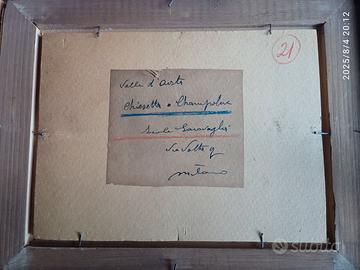 21
Valle d'Aosta
Chiesetta a Champoluc
Garavaglia
Via Volta 9
Milano
2025/8/4 20:12
subito